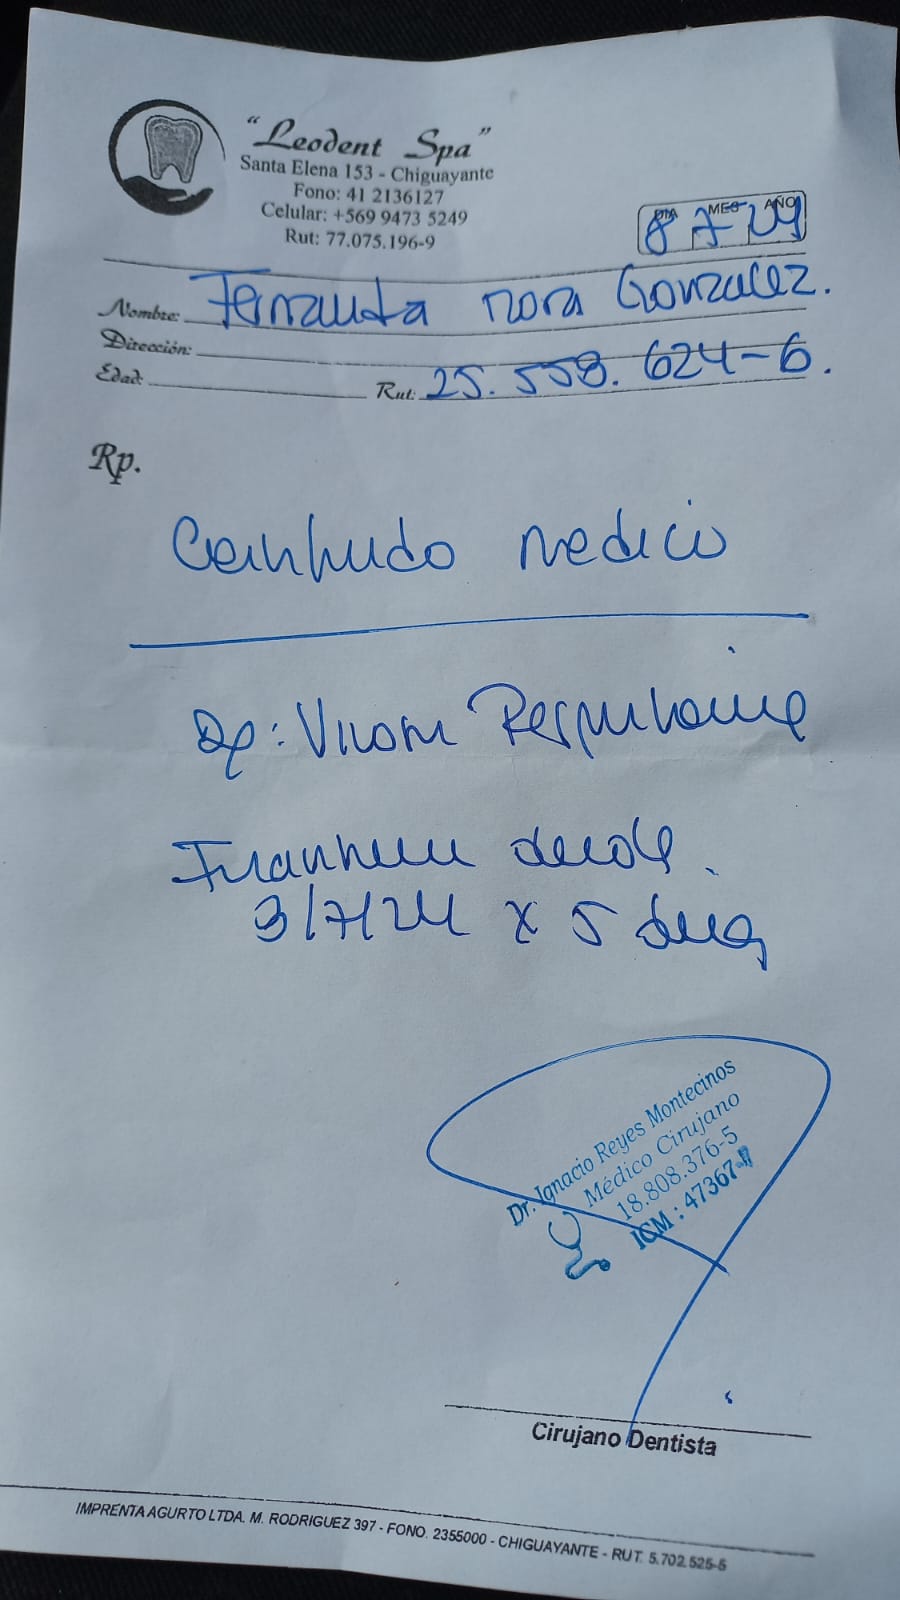 "Leodent Spa"
Santa Elena 153 - Chiguayante
Fono: 41 2136127
Celular: +569 9473 5249
Rut: 77.075.196-9
DIA MES AÑO
8 7 24
Nombre: Fernanda mora Gonzalez.
Dirección:
Edad: Rut: 25.558.624-6.
Rp.
Certificado medico
Dg: Virosis Respiratoria
desde
3/7/24 x 5 dias
Dr. Ignacio Reyes Montecinos
Médico Cirujano
18.808.376-5
ICM : 47367-
Cirujano Dentista
IMPRENTA AGURTO LTDA. M. RODRIGUEZ 397 - FONO. 2355000 - CHIGUAYANTE - RUT. 5.702.525-5